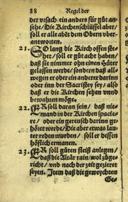 88 Regel der
der ursach ein anders für gut an-
sehe/ Die Kirchenschlüssel aber/
soll er alle abēt dem Obern uber-
antworten.
21. So lang die Kirch offen ste-
het/ soll er gibt acht haben/
daß sie nimmer ohn einen Hüter
gelassen werde/ sondern daß all-
wegen er oder ein anderer darin
oder inn der Sacristey sey/ also
daß er die Kirchen sehen und
bewahren möge.
22. Er soll daran sein/ daß nie-
mand in der Kirchen spacie-
re/ oder ein geschrey darinn ge-
höret werde/
höflich ermanen.
23. Er soll guten fleiß anlegen/
daß die Altär rain/ wol zuge-
richt/ und nach der zeit geziert
seyen. Item daß die geweychten